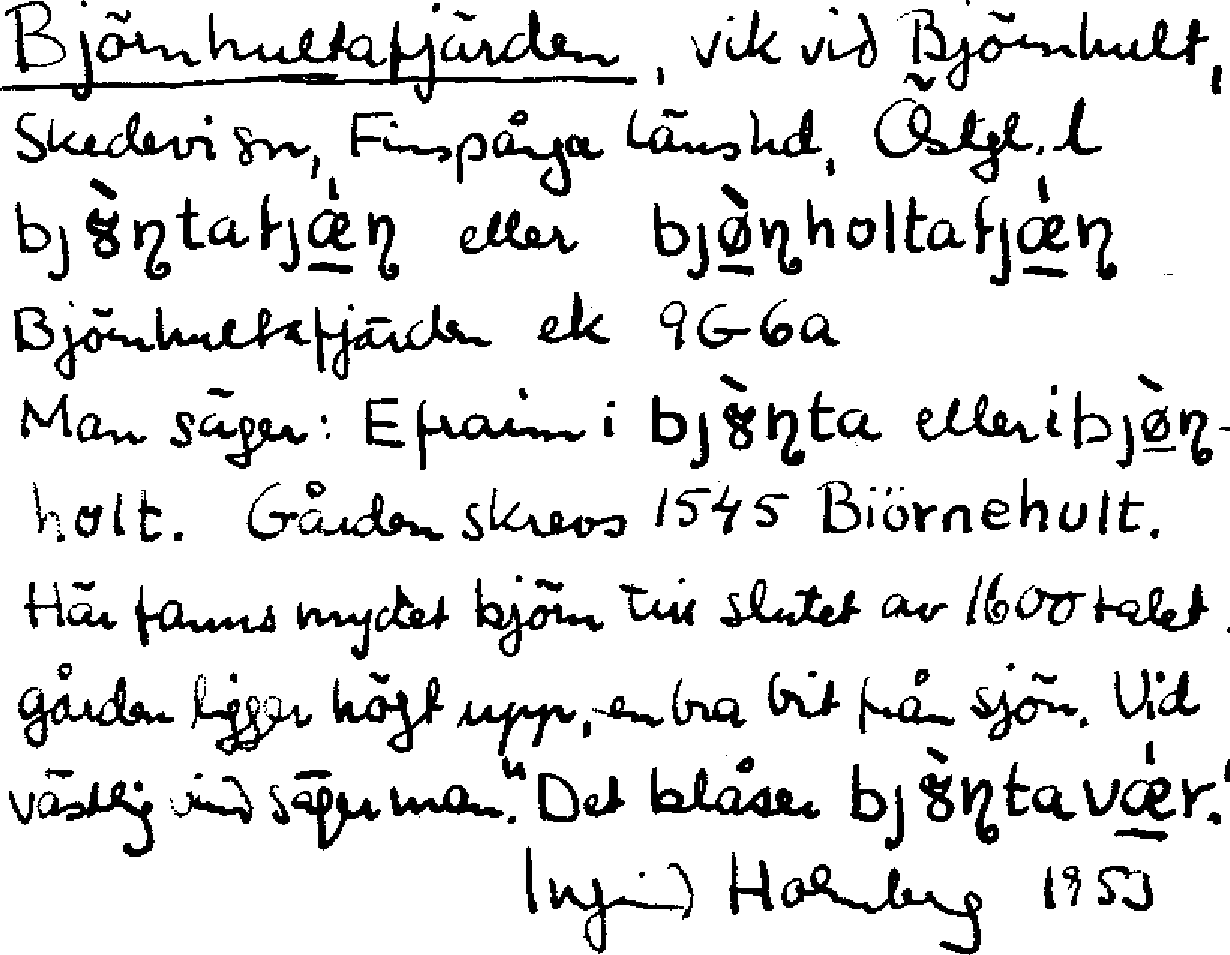 Björnhultafjärden, vik vid Björnhult,
Skedevi sn, Finspånga länshd, Östgl. l
bjɞ̀ɳtafjǽɳ eller bjø̀ɳholtafjǽɳ
Björnhultafjärden ek 9G6a
Man säger: Efraim i bjɞ̀ɳta eller i bjø̀ɳ-
holt. Gården skrevs 1545 Biörnehult.
Här fanns mycket björn till slutet av 1600 talet.
gården ligger högt upp, en bra bit från sjön. Vid
västlig vind säger man. "Det blåser bjɞ̀ɳtavǽr."
Ingrid Holmberg 1953